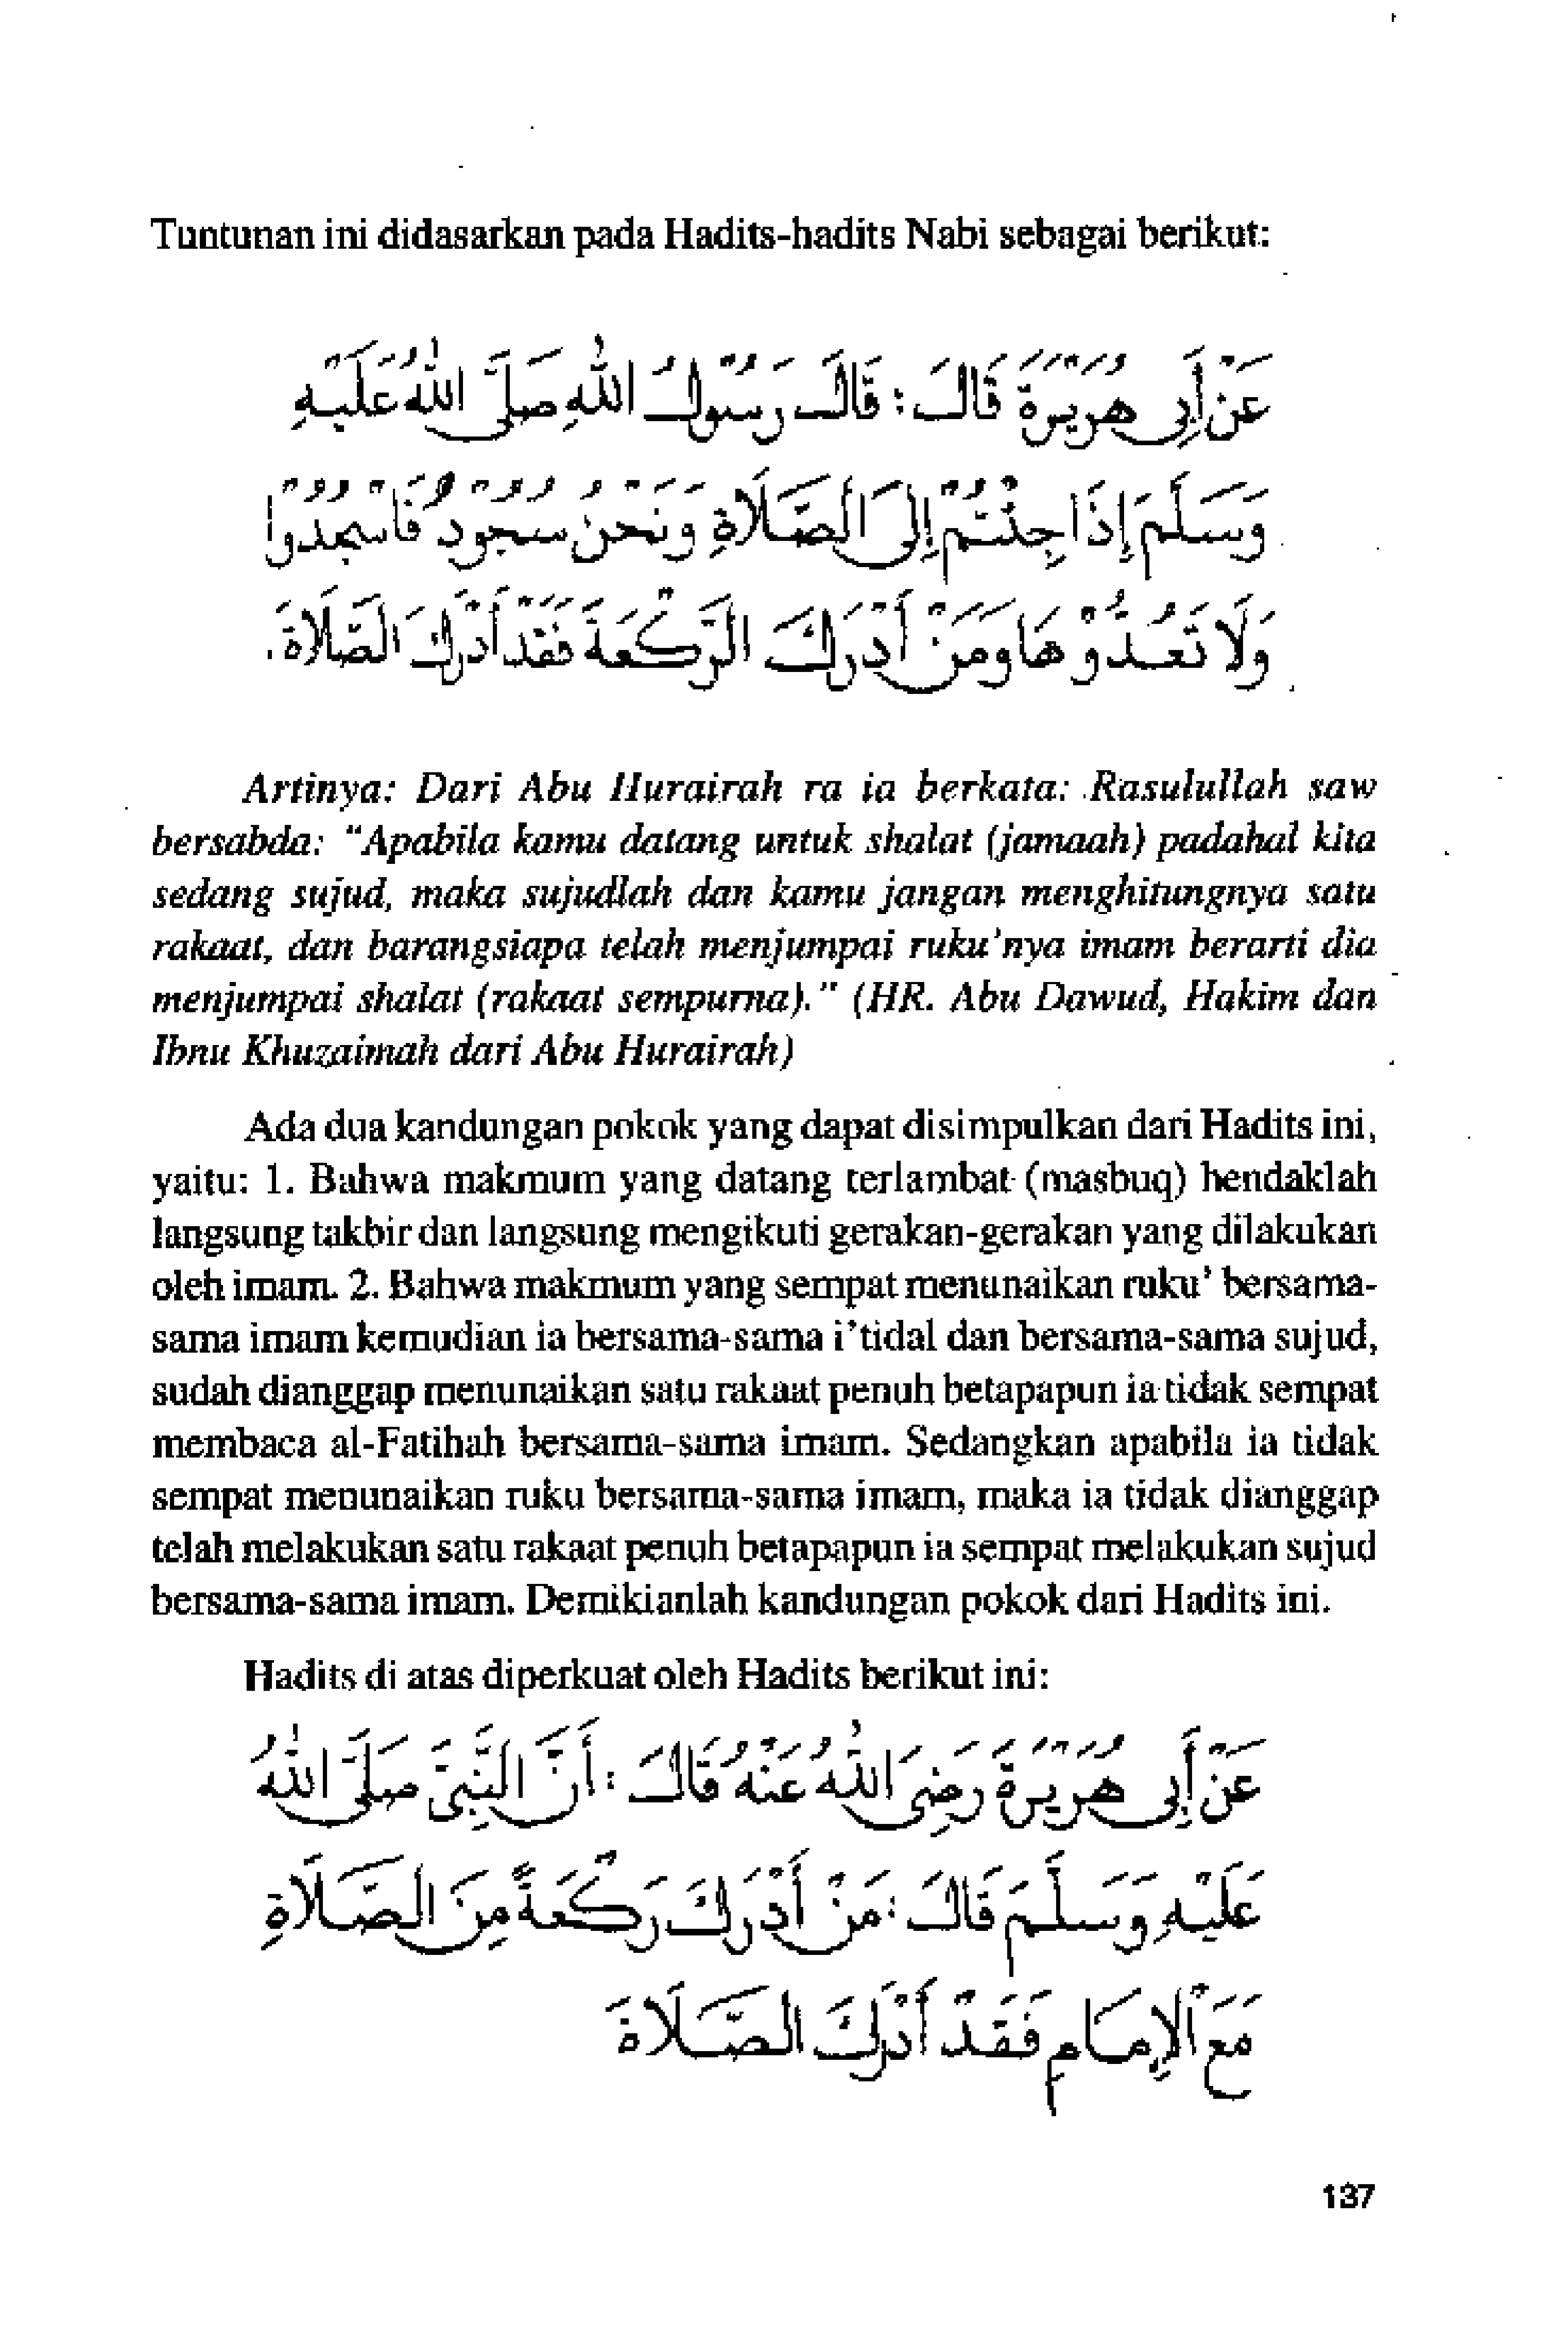 Tuntunan ini didasarkan pada Hadits-hadits Nabi sebagai berikut:
عَنْ أَبِى هُرَيْرَةَ قَالَ : قَالَ رَسُوْلُ اللهِ صَلَّى اللهُ عَلَيْهِ
وَسَلَّمَ إِذَا جِئْتُمْ إِلَى الصَّلَاةِ وَنَحْنُ سُجُوْدٌ فَاسْجُدُوْا
وَلَا تَعُدُّوْهَا وَمَنْ أَدْرَكَ الرَّكْعَةَ فَقَدْ أَدْرَكَ الصَّلَاةَ.
Artinya: Dari Abu Hurairah ra ia berkata: Rasulullah saw
bersabda: "Apabila kamu datang untuk shalat (jamaah) padahal kita
sedang sujud, maka sujudlah dan kamu jangan menghitungnya satu
rakaat, dan barangsiapa telah menjumpai ruku'nya imam berarti dia
menjumpai shalat (rakaat sempurna)." (HR. Abu Dawud, Hakim dan
Ibnu Khuzaimah dari Abu Hurairah)
Ada dua kandungan pokok yang dapat disimpulkan dari Hadits ini,
yaitu: 1. Bahwa makmum yang datang terlambat (masbuq) hendaklah
langsung takbir dan langsung mengikuti gerakan-gerakan yang dilakukan
oleh imam. 2. Bahwa makmum yang sempat menunaikan ruku' bersama-
sama imam kemudian ia bersama-sama i'tidal dan bersama-sama sujud,
sudah dianggap menunaikan satu rakaat penuh betapapun ia tidak sempat
membaca al-Fatihah bersama-sama imam. Sedangkan apabila ia tidak
sempat menunaikan ruku bersama-sama imam, maka ia tidak dianggap
telah melakukan satu rakaat penuh betapapun ia sempat melakukan sujud
bersama-sama imam. Demikianlah kandungan pokok dari Hadits ini.
Hadits di atas diperkuat oleh Hadits berikut ini:
عَنْ أَبِى هُرَيْرَةَ رَضِىَ اللهُ عَنْهُ قَالَ : أَنَّ النَّبِىَّ صَلَّى اللهُ
عَلَيْهِ وَسَلَّمَ قَالَ : مَنْ أَدْرَكَ رَكْعَةً مِنَ الصَّلَاةِ
مَعَ الْإِمَامِ فَقَدْ أَدْرَكَ الصَّلَاةَ
137